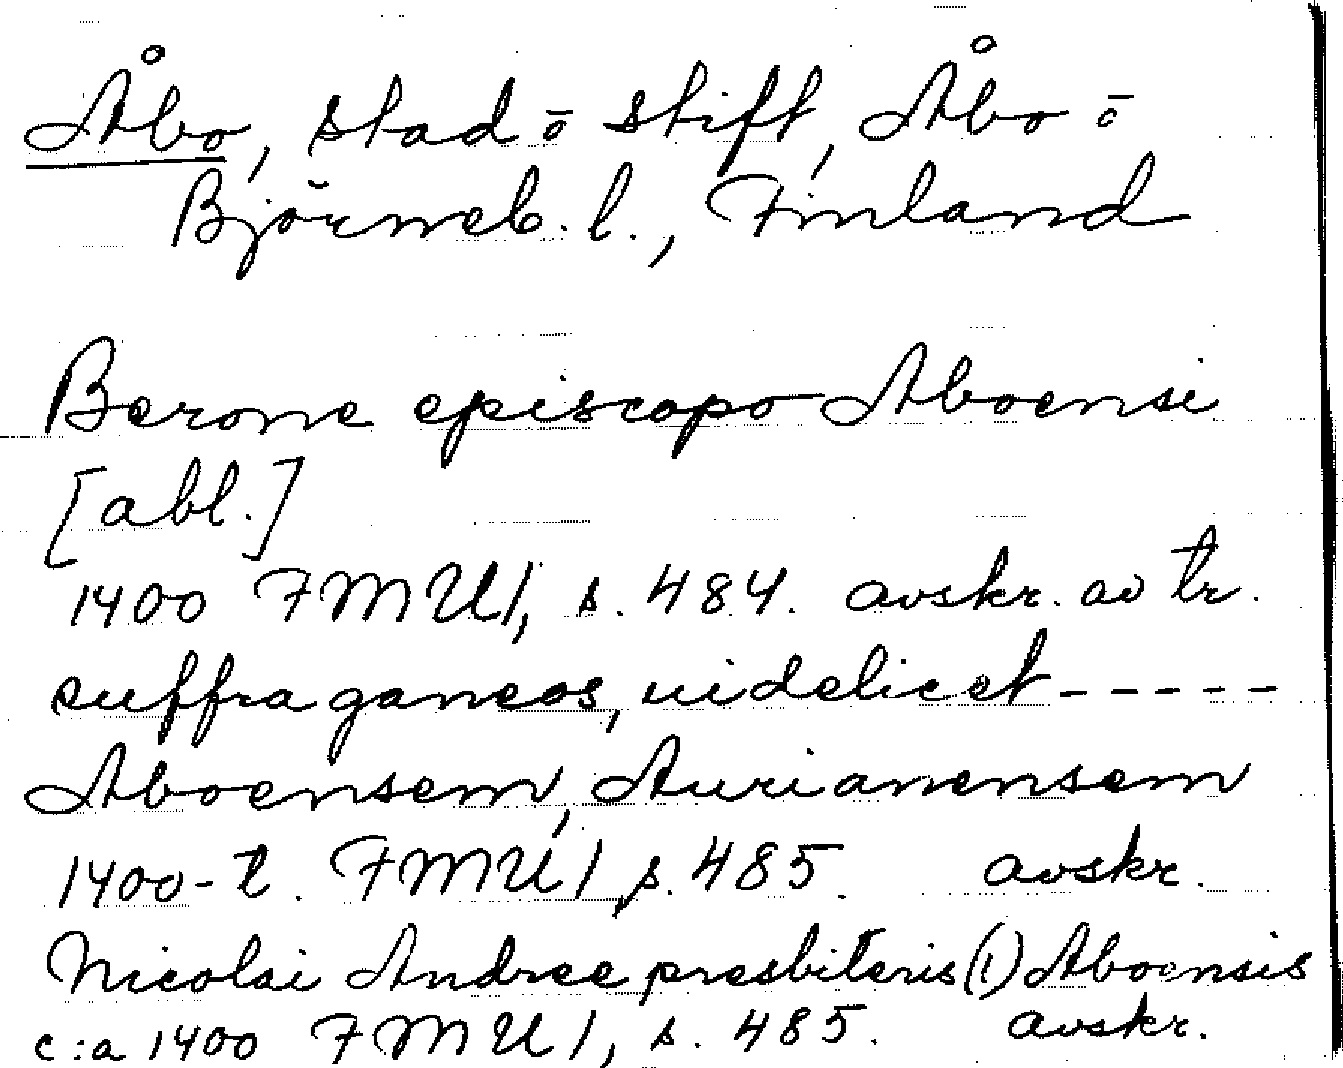 Åbo, stad ō stift, Åbo ō
Björneb. l., Finland
Berone episcopo Aboensi
[abl.]
1400 FMU 1, s. 484. avskr. av tr.
suffraganeos, uidelicet - - - - -
Aboensem, Aurianensem
1400-t. FMU 1, s. 485. avskr.
Nicolai Andree presbiteris (!) Aboensis
c:a 1400 FMU 1, s. 485. avskr.